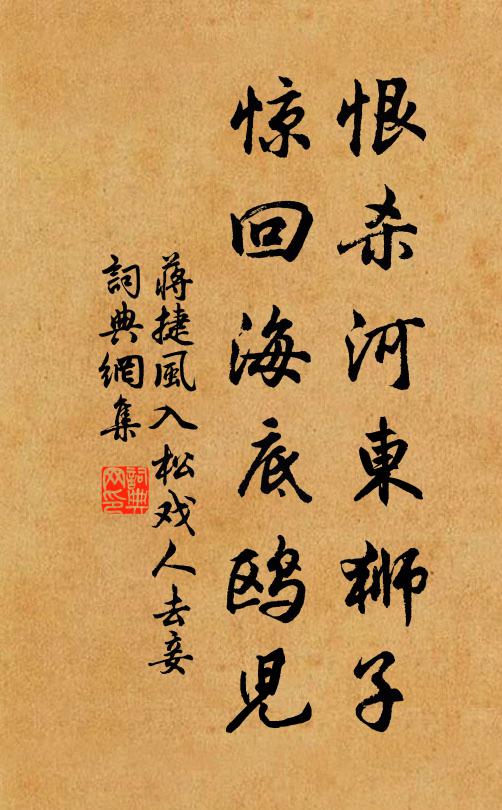 恨杀河東獅子
惊回海底鸥児
蒋捷風入松戏人去妾
詞典網集
詞典网印